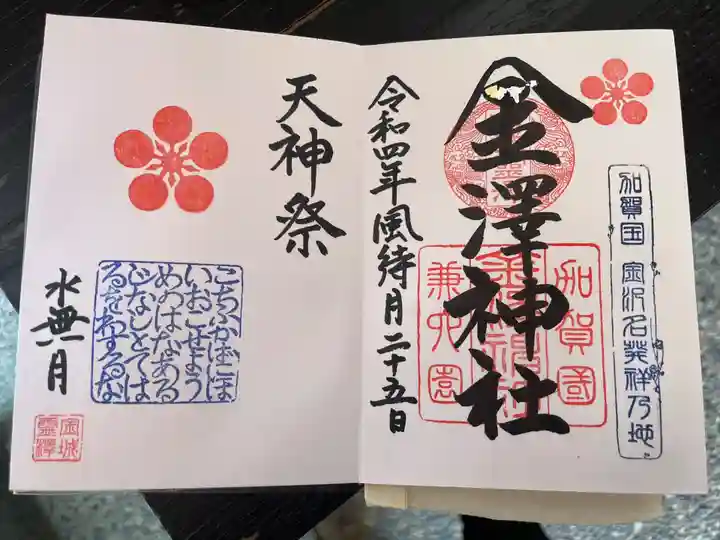 加賀国 金沢名発祥乃地
金澤神社
加賀國
兼六園
令和四年風待月二十五日
天神祭
こちふかばにほ
いおこせよう
めのはなある
じなしとては
るをわするな
水無月
金城
霊澤